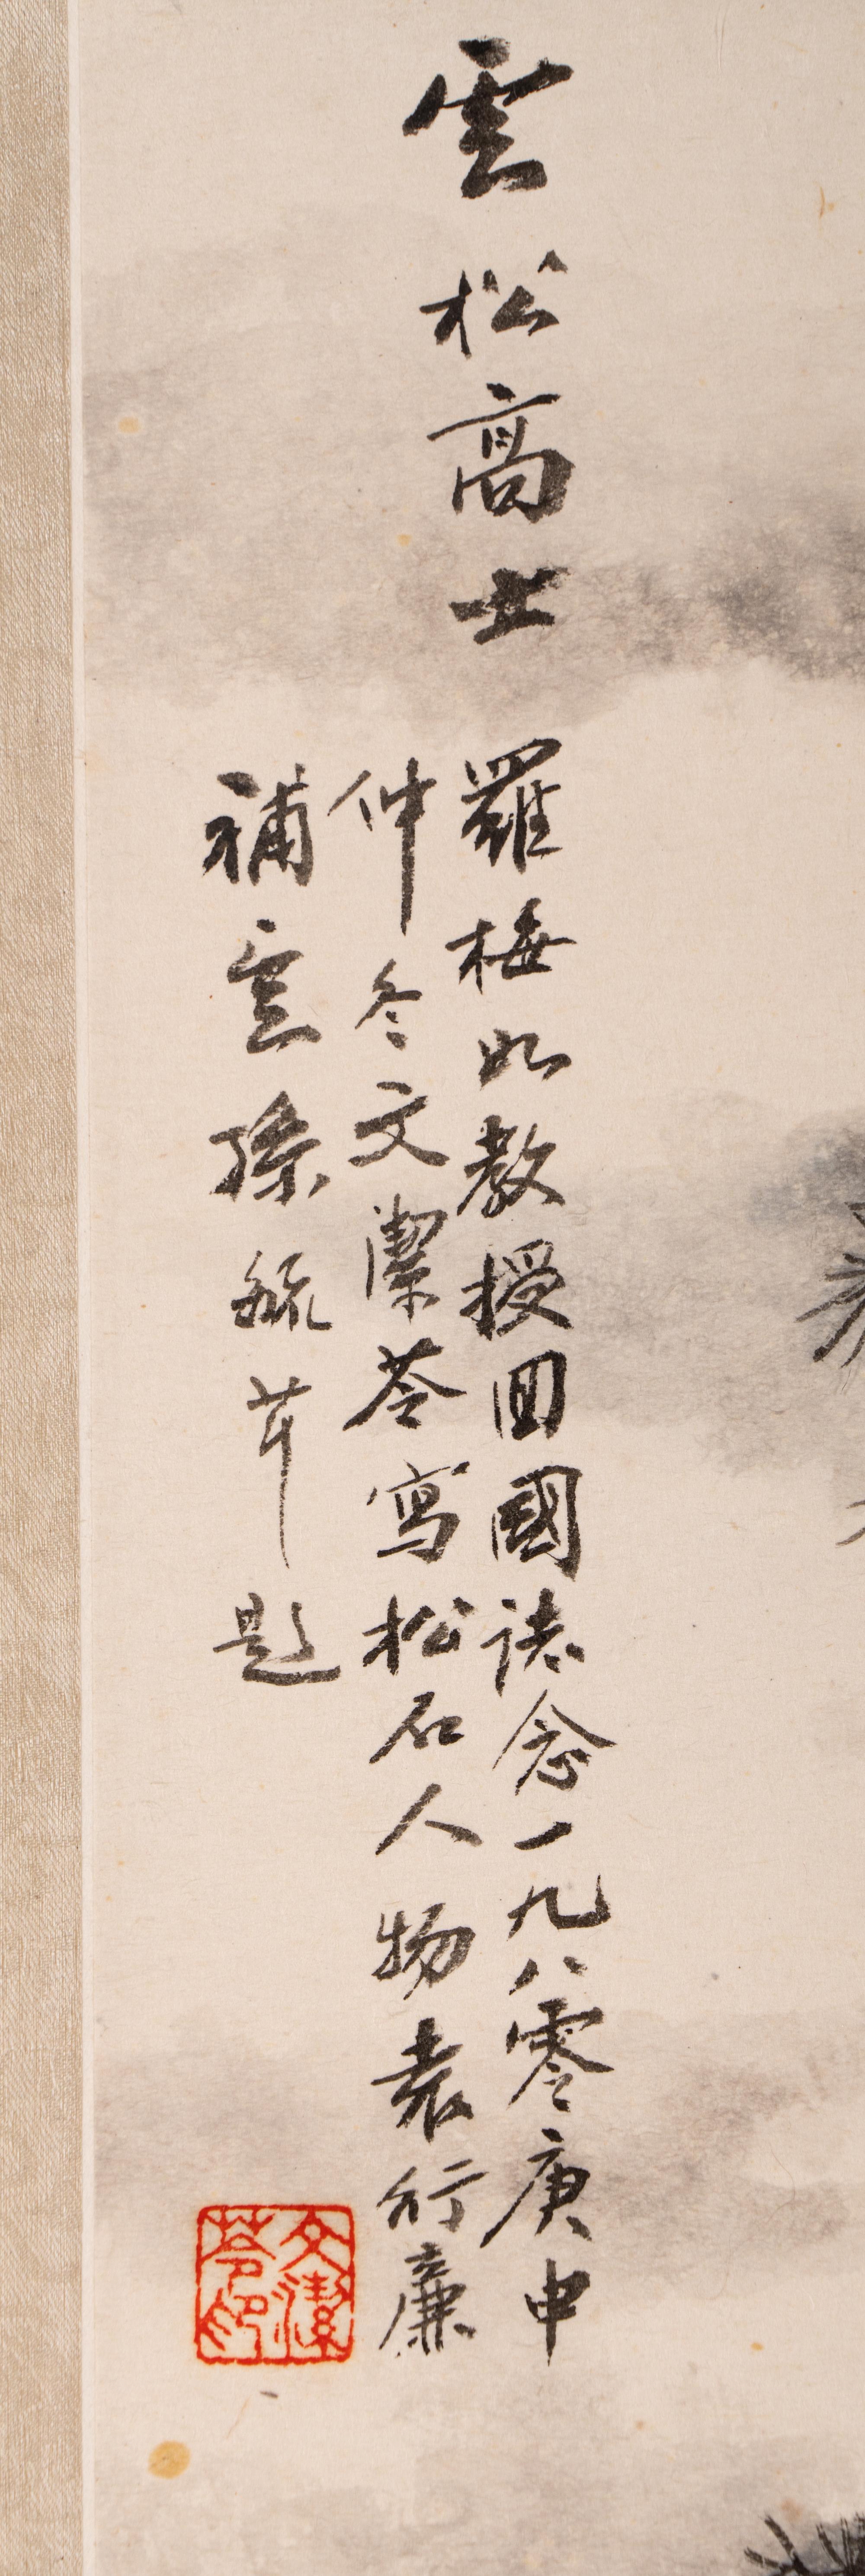 雲松高士
羅梅如教授回國誌念一九八零庚申
仲冬文潔苓寫松石人物袁行廉
補雲孫毓芹題
文潔苓印